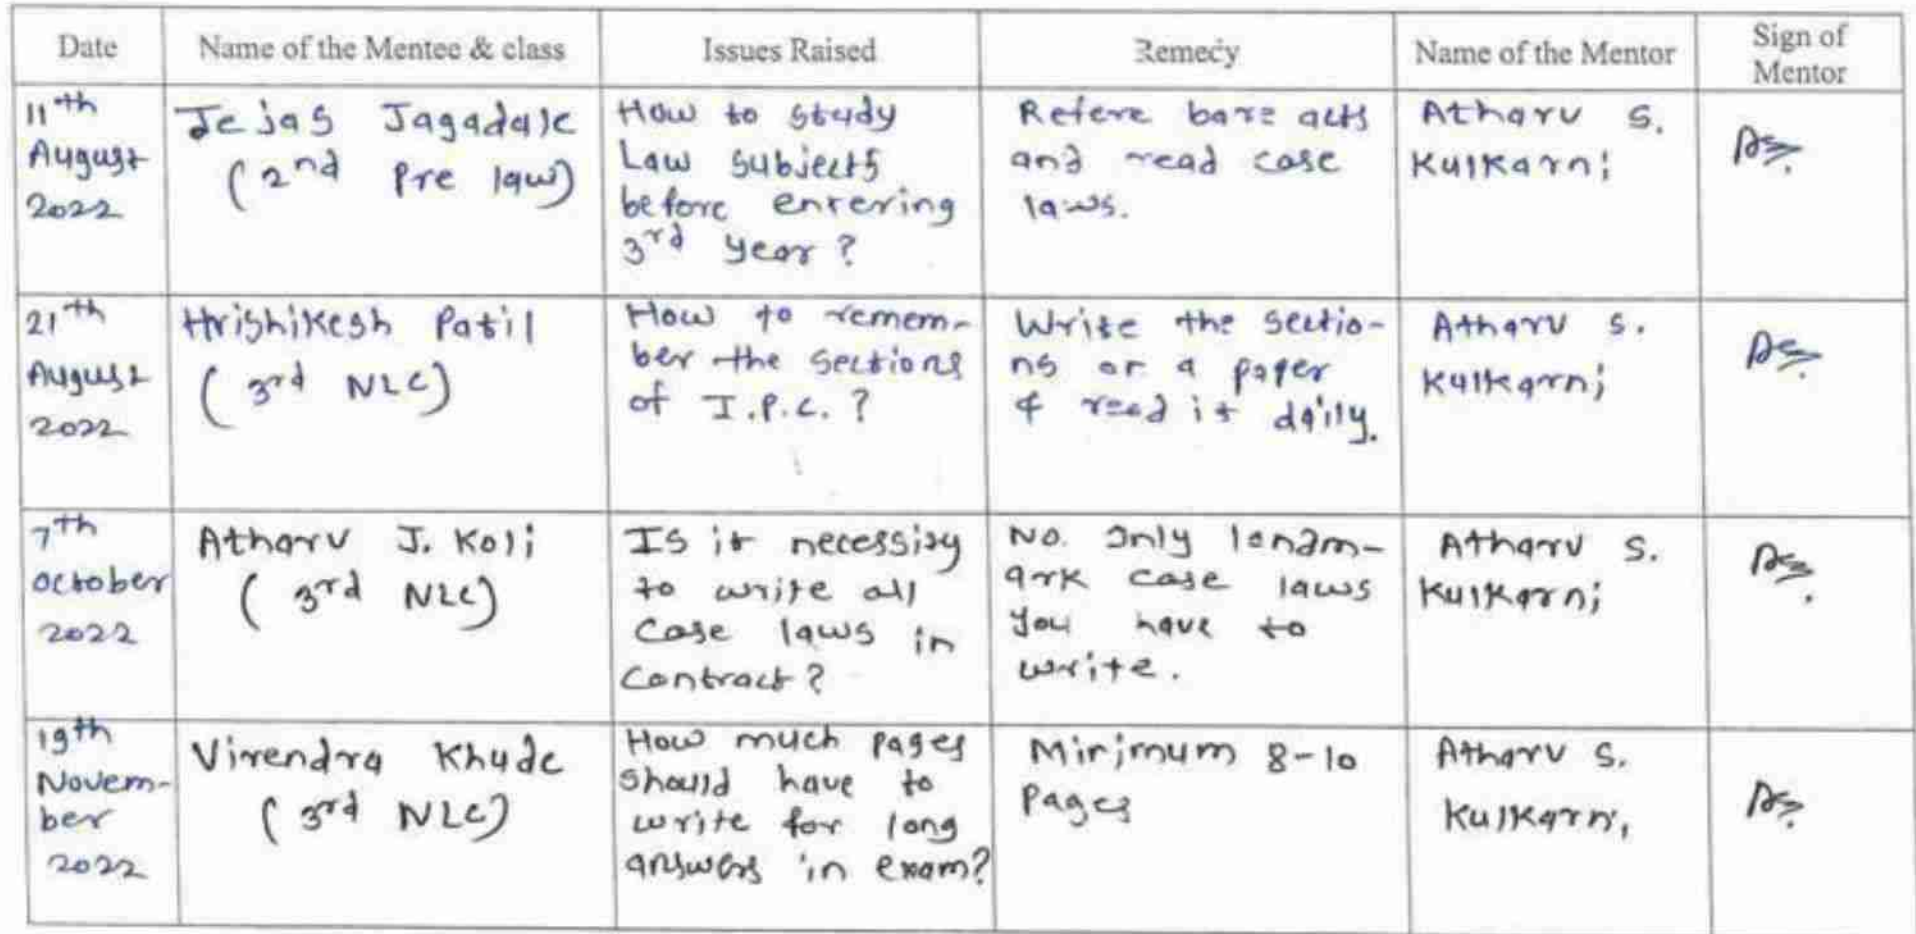 Date
Name of the Mentee & class
Issues Raised
Remedy
Name of the Mentor
Sign of
Mentor
11th
August
2022
Tejas Jagadale
(2nd Pre law)
How to study
Law subjects
before entering
3rd year?
Refere bare acts
and read case
laws.
Atharv S.
Kulkarni
21th
August
2022
Hrishikesh Patil
(3rd NLC)
How to remem-
ber the sections
of I.P.C.?
Write the sectio-
ns on a paper
& read it daily.
Atharv S.
Kulkarni
7th
october
2022
Atharv J. Koli
(3rd NLC)
Is it necessisy
to write all
case laws in
contract?
No. only landm-
ark case laws
you have to
write.
Atharv S.
Kulkarni
19th
Novem-
ber
2022
Virendra Khude
(3rd NLC)
How much pages
should have to
write for long
answers in exam?
Minimum 8-10
Pages
Atharv S.
Kulkarni